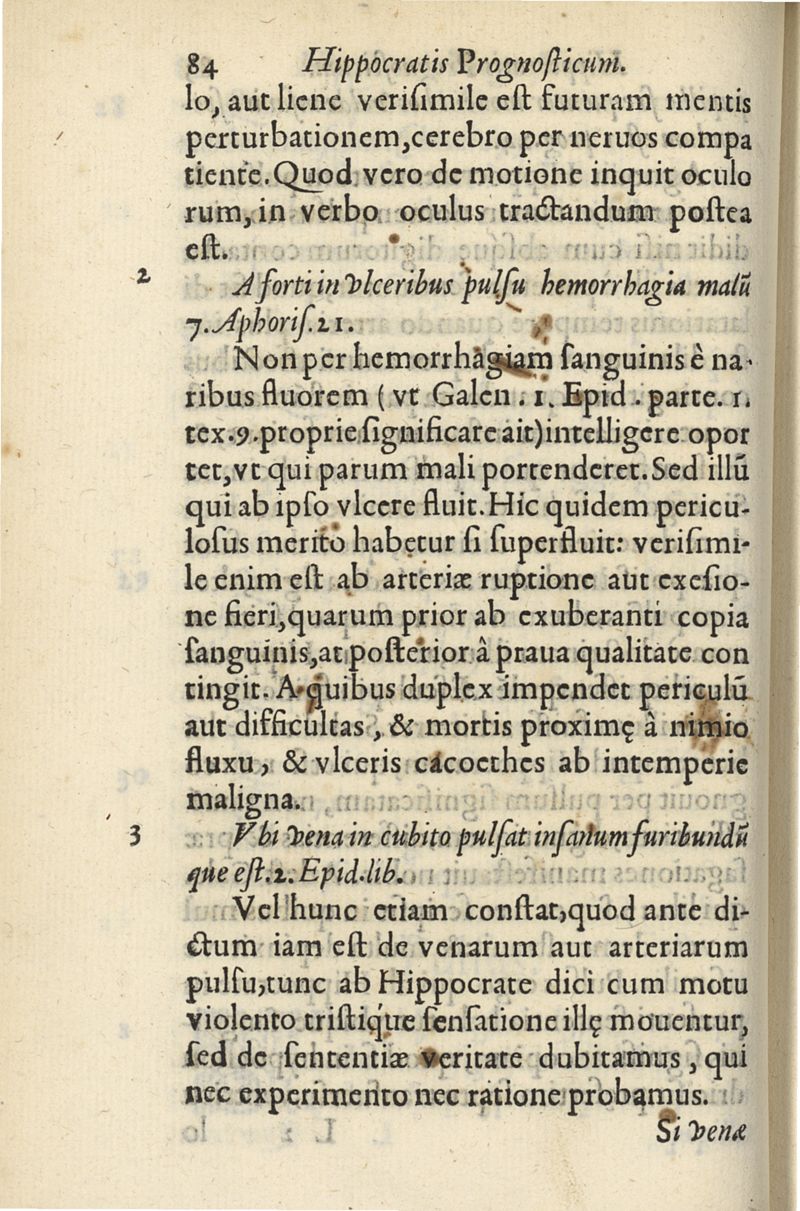 84 Hippocratis Prognosticum.
lo, aut liene verisimile est futuram mentis
perturbationem,cerebro per neruos compa
tiente.Quod vero de motione inquit oculo
rum,in verbo oculus tractandum postea
est.
2 A forti in vlceribus pulsu hemorrhagia malū
7.Aphoris.21.
Non per hemorrhàgiam sanguinis è na-
ribus fluorem ( vt Galen . 1. Epid . parte. 1.
tex.9.proprie significare ait)intelligere opor
tet,vt qui parum mali portenderet.Sed illū
qui ab ipso vlcere fluit.Hic quidem pericu-
losus merito habetur si superfluit: verisimi-
le enim est ab arteriæ ruptione aut exesio-
ne fieri,quarum prior ab exuberanti copia
sanguinis,at posterior à praua qualitate con
tingit. A quibus duplex impendet periculū
aut difficultas , & mortis proximę à nimio
fluxu, & vlceris cacoethes ab intemperie
maligna.
3 Vbi vena in cubito pulsat insanum furibundū
que est.2.Epid.lib.
Vel hunc etiam constat,quod ante di-
ctum iam est de venarum aut arteriarum
pulsu,tunc ab Hippocrate dici cum motu
violento tristique sensatione illę mouentur,
sed de sententiæ veritate dubitamus , qui
nec experimento nec ratione probamus.
Si venæ